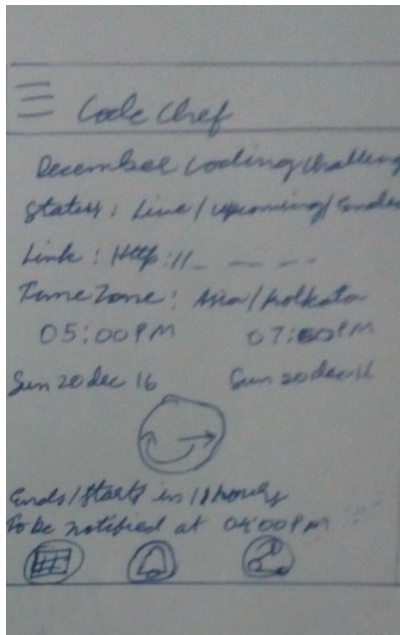 Code Chef
December Coding Challeng
Status: Live/upcoming/Ended
Link: Http://_ _ _ _
TimeZone: Asia/Kolkata
05:00PM 07:00PM
Sun 20 dec 16 Sun 20 dec 16
Ends/Starts in 18 hours
To be notified at 04:00PM